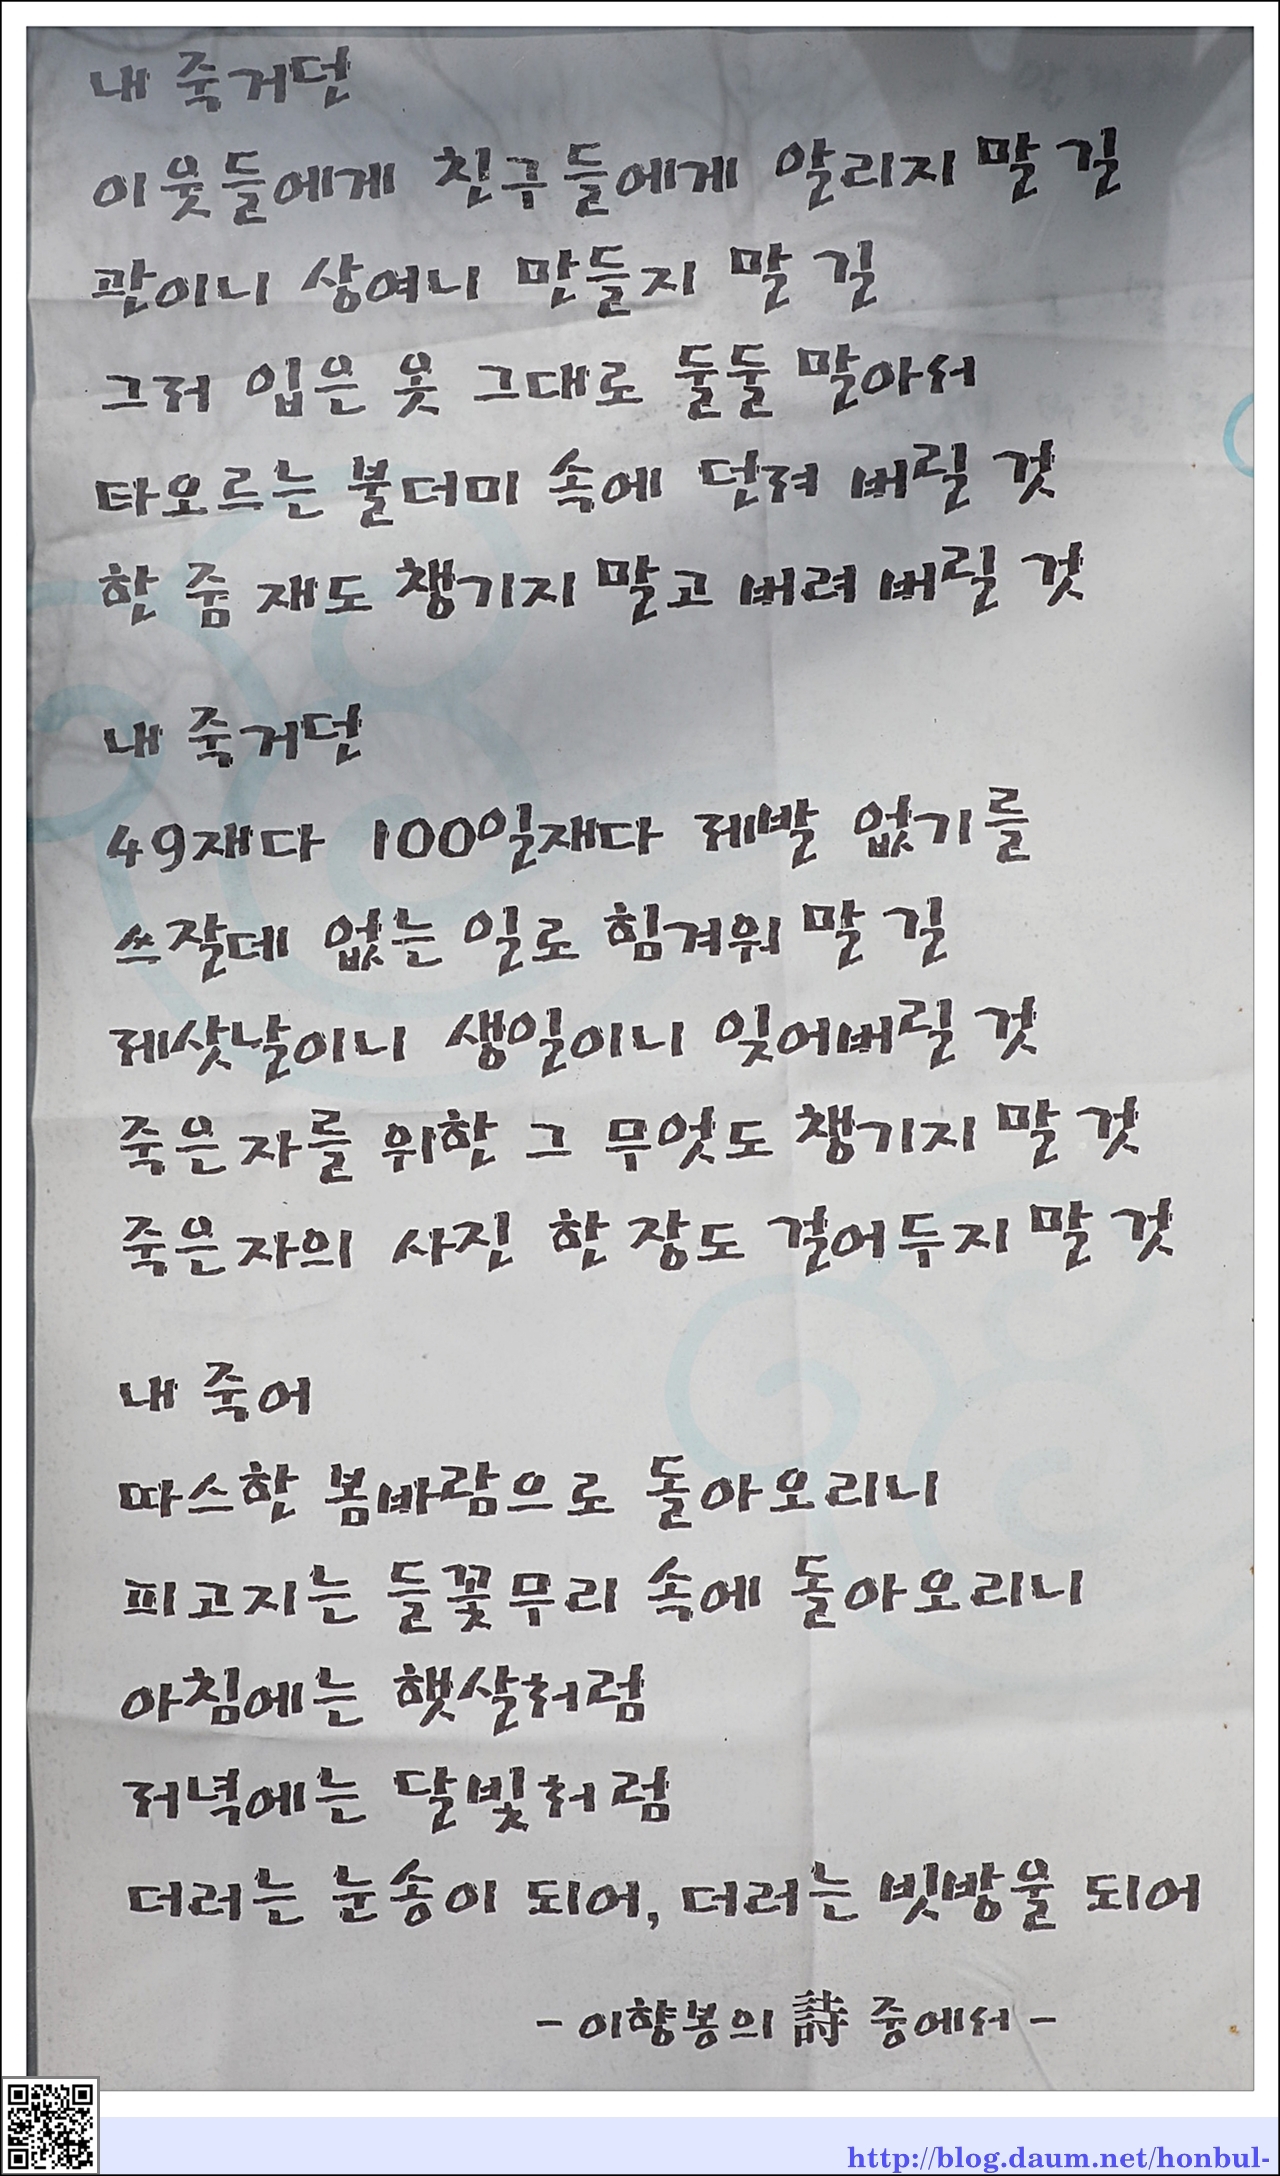 내 죽거던
이웃들에게 친구들에게 알리지 말 길
관이니 상여니 만들지 말 길
그저 입은 옷 그대로 둘둘 말아서
타오르는 불더미 속에 던져 버릴 것
한 줌 재도 챙기지 말고 버려 버릴 것
내 죽거던
49재다 100일재다 제발 없기를
쓰잘데 없는 일로 힘겨워 말 길
제삿날이니 생일이니 잊어버릴 것
죽은자를 위한 그 무엇도 챙기지 말 것
죽은자의 사진 한 장도 걸어두지 말 것
내 죽어
따스한 봄바람으로 돌아오리니
피고지는 들꽃무리 속에 돌아오리니
아침에는 햇살처럼
저녁에는 달빛처럼
더러는 눈송이 되어, 더러는 빗방울 되어
- 이향봉의 詩 중에서 -
http://blog.daum.net/honbul-